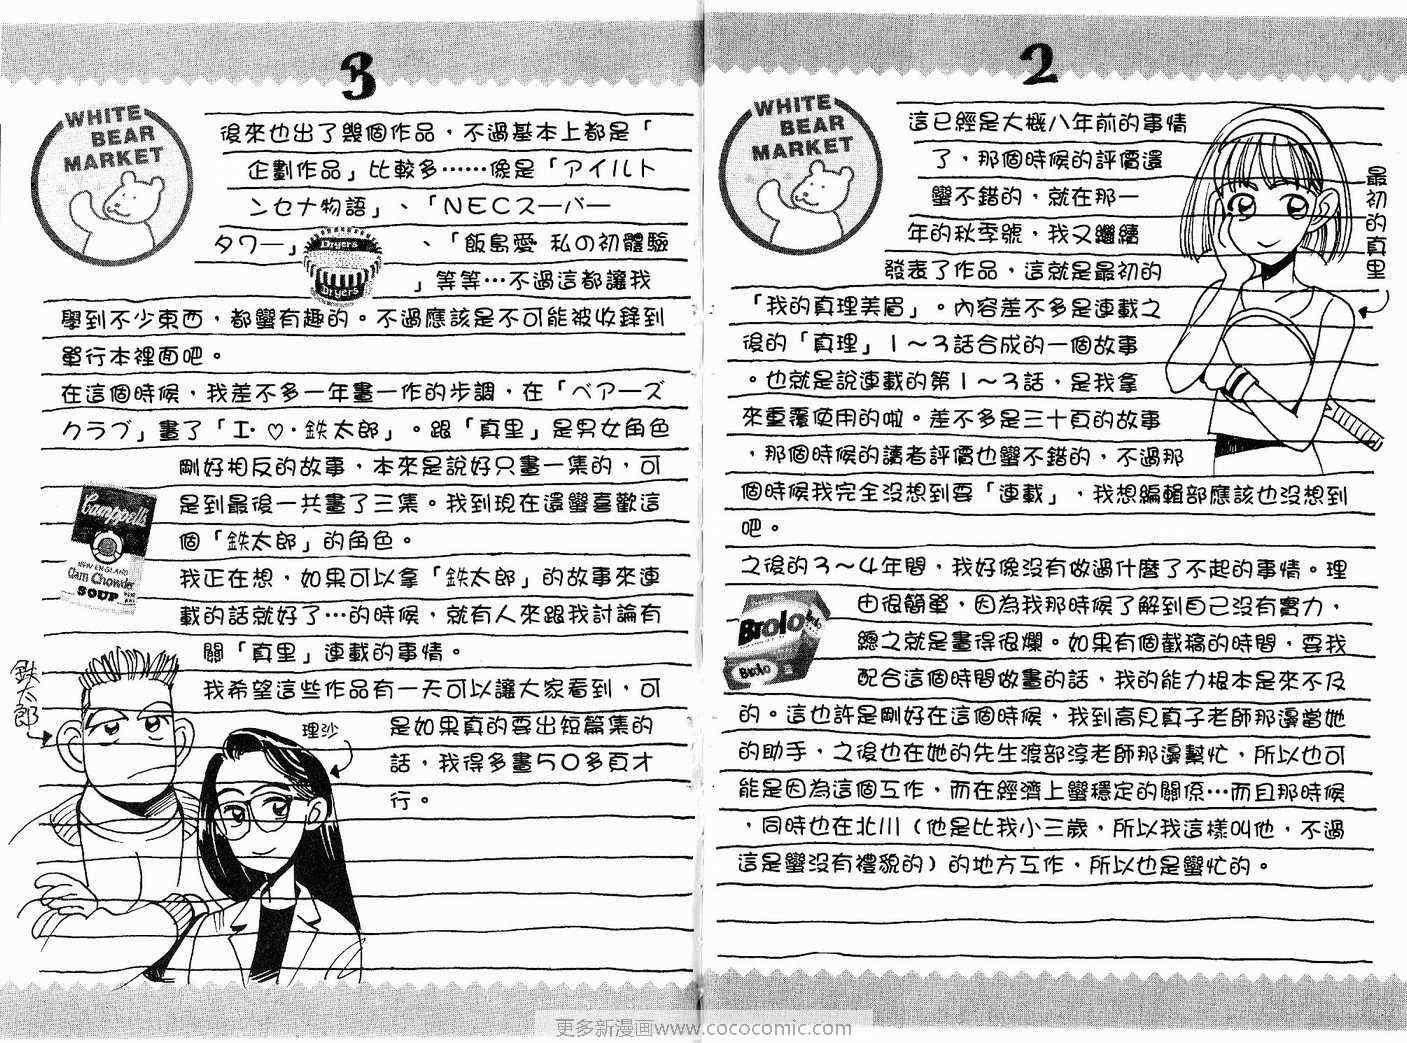 2
WHITE
BEAR
MARKET
這已經是大概八年前的事情
了，那個時候的評價還
蠻不錯的，就在那一
年的秋季號，我又繼續
發表了作品，這就是最初的
「我的真理美眉」。內容差不多是連載之
後的「真理」1～3話合成的一個故事
。也就是說連載的第1～3話，是我拿
來重覆使用的啦。差不多是三十頁的故事
，那個時候的讀者評價也蠻不錯的，不過那
個時候我完全沒想到要「連載」，我想編輯部應該也沒想到
吧。
之後的3～4年間，我好像沒有做過什麼了不起的事情。理
由很簡單，因為我那時候了解到自己沒有實力，
總之就是畫得很爛。如果有個截稿的時間，要我
配合這個時間做畫的話，我的能力根本是來不及
的。這也許是剛好在這個時候，我到高見真子老師那邊當她
的助手，之後也在她的先生渡部淳老師那邊幫忙，所以也可
能是因為這個工作，而在經濟上蠻穩定的關係…而且那時候
，同時也在北川（他是比我小三歲，所以我這樣叫他，不過
這是蠻沒有禮貌的）的地方工作，所以也是蠻忙的。
最初的真里
Brolo
Brolo
3
WHITE
BEAR
MARKET
後來也出了幾個作品，不過基本上都是「
企劃作品」比較多……像是「アイルト
ンセナ物語」、「NECスーパー
タワー」、「飯島愛 私の初體驗
」等等…不過這都讓我
學到不少東西，都蠻有趣的。不過應該是不可能被收錄到
單行本裡面吧。
在這個時候，我差不多一年畫一作的步調，在「ベアーズ
クラブ」畫了「I・♡・鉄太郎」。跟「真里」是男女角色
剛好相反的故事，本來是說好只畫一集的，可
是到最後一共畫了三集。我到現在還蠻喜歡這
個「鉄太郎」的角色。
我正在想，如果可以拿「鉄太郎」的故事來連
載的話就好了…的時候，就有人來跟我討論有
關「真里」連載的事情。
我希望這些作品有一天可以讓大家看到，可
是如果真的要出短篇集的
話，我得多畫50多頁才
行。
Dryers
Dryers
Campbell's
NEW ENGLAND
Clam Chowder
SOUP
鉄太郎
理沙
更多新漫画www.cococomic.com